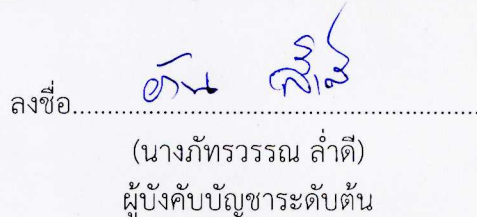 ลงชื่อ....................................................
(นางภัทรวรรณ ล่ำดี)
ผู้บังคับบัญชาระดับต้น